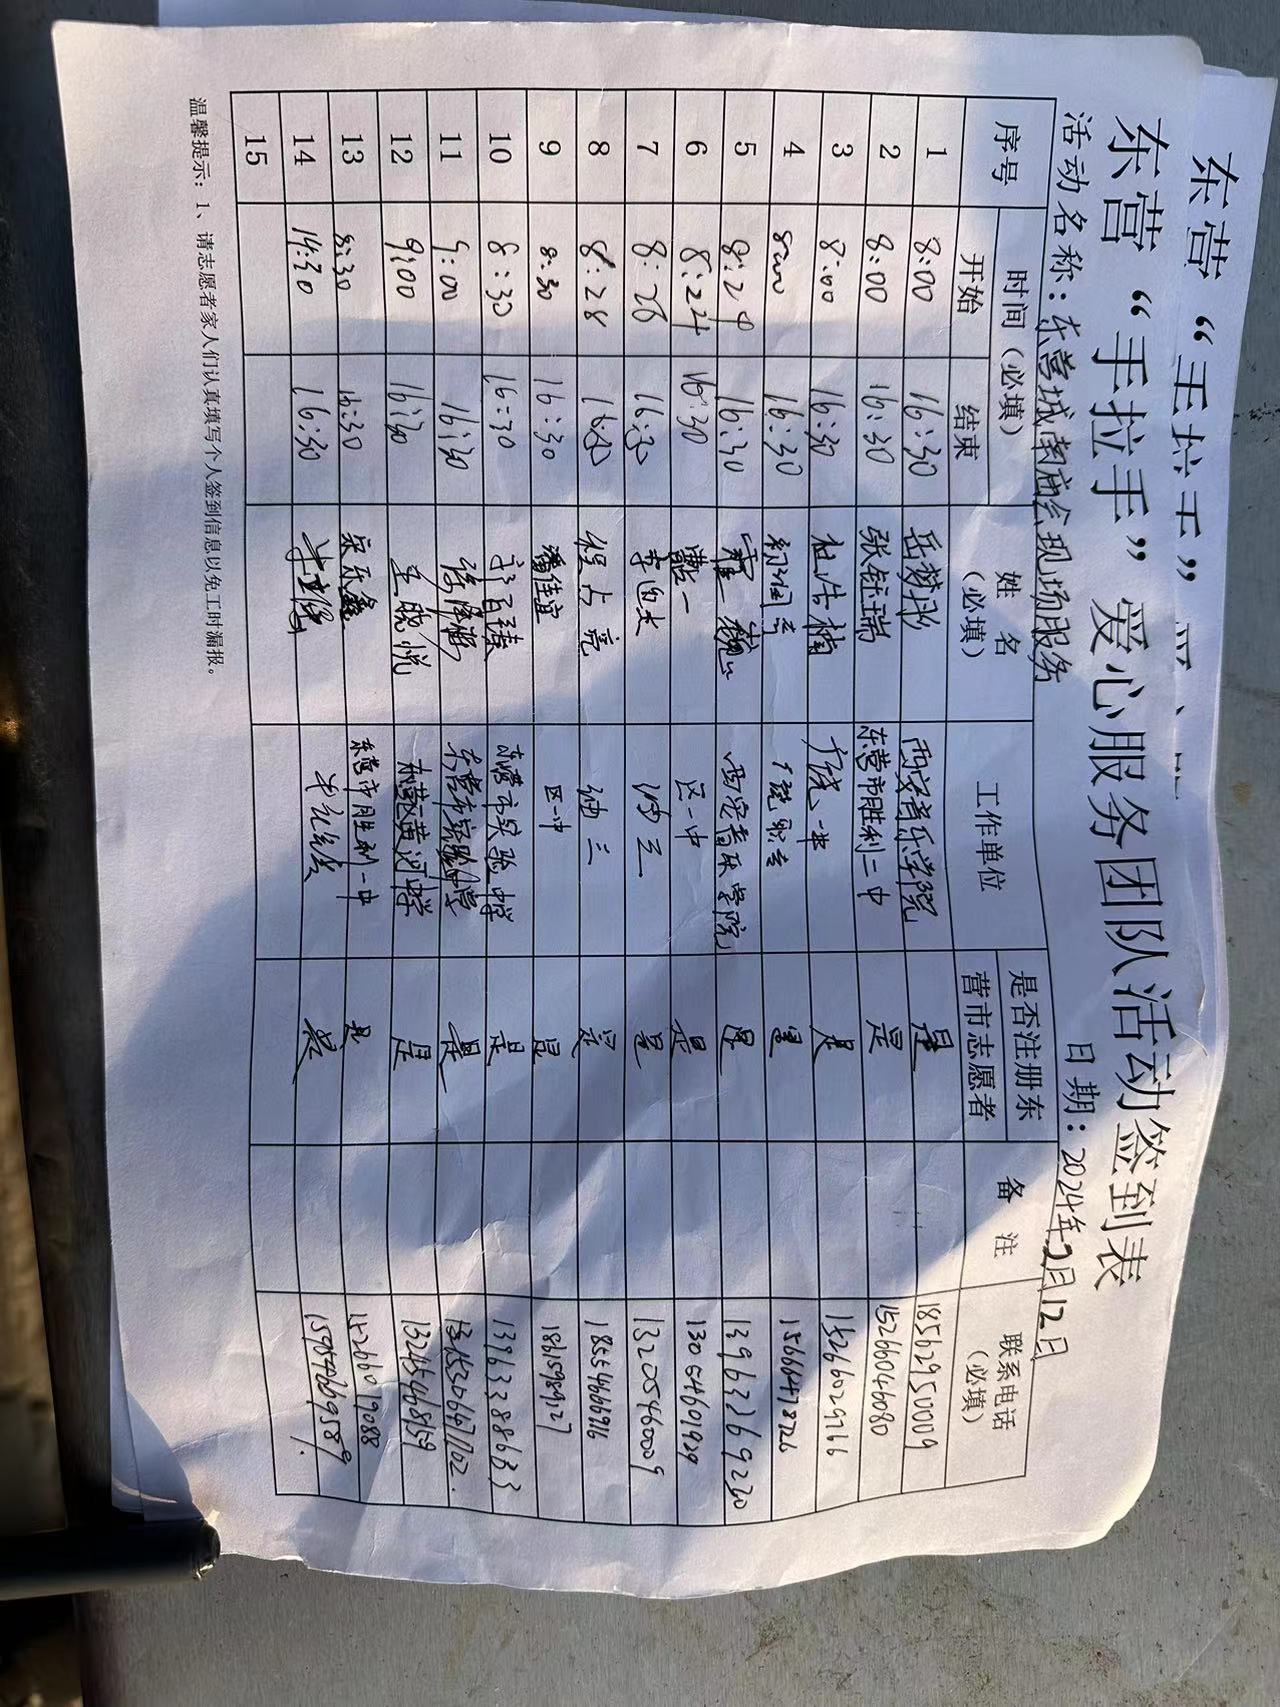 东营“手拉手”
东营“手拉手”爱心服务团队活动签到表
活动名称：东营城南庙会现场服务 日期：2024年2月12日
序号 时间（必填） 姓名（必填） 工作单位 是否注册东营市志愿者 备注 联系电话（必填）
开始 结束
1 8:00 16:30 岳梦 西安音乐学院 是 18562950009
2 8:00 16:30 张钰瑞 东营市胜利二中 是 15266046080
3 8:00 16:30 杜浩楠 广饶一中 是 15266029766
4 8:00 16:30 是 15666478726
5 8:24 16:30 霍巍 西安音乐学院 是 13963269220
6 8:24 16:30 区一中 是 13054601929
7 8:26 16:30 李迎大 三 是 132205460009
8 8:28 程占亮 三 是 18554666916
9 8:30 16:30 潘佳宜 区一中 是 18615989127
10 8:30 16:30 东营市实验中学 是 13963388633
11 9:00 16:30 东营市实验中学 是
12 9:00 16:30 王晓悦 东营区黄河中学 是 13245468159
13 8:30 16:30 宗乐鑫 东营市胜利一中 是 15266019088
14 14:30 16:30 是 15954669589
15
温馨提示：1、请志愿者家人们认真填写个人签到信息以免工时漏报。